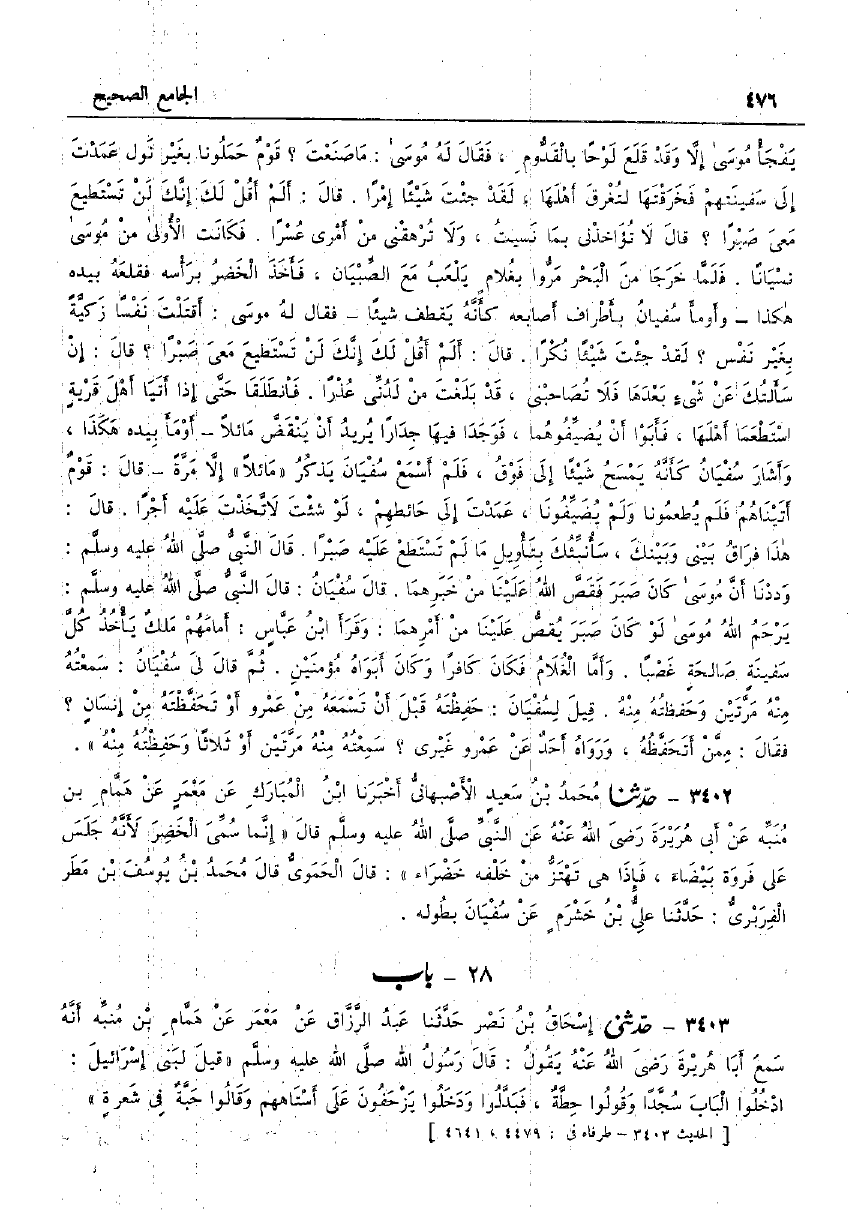 ٤٧٦ الجامع الصحيح
يَفْجَأْ مُوسَىٰ إِلَّا وَقَدْ قَلَعَ لَوْحًا بِالْقَدُّومِ ، فَقَالَ لَهُ مُوسَىٰ : مَاصَنَعْتَ ؟ قَوْمٌ حَمَلُونا بِغَيْرِ نَولٍ عَمَدْتَ
إِلَى سَفِينَتِهِمْ فَخَرَقْتَهَا لِتُغْرِقَ أَهْلَهَا ، لَقَدْ جِئْتَ شَيْئًا إِمْرًا . قالَ : أَلَمْ أَقُلْ لَكَ إِنَّكَ لَنْ تَسْتَطِيعَ
مَعِىَ صَبْرًا ؟ قالَ لَا تُؤَاخِذْنِى بِمَا نَسِيتُ ، وَلَا تُرْهِقْنِى مِنْ أَمْرِى عُسْرًا . فَكَانَتِ الْأُولَىٰ مِنْ مُوسَىٰ
نِسْيَانًا . فَلَمَّا خَرَجَا مِنَ الْبَحْرِ مَرُّوا بِغُلَامٍ يَلْعَبُ مَعَ الصِّبْيَانِ ، فَأَخَذَ الْخَضِرُ بِرَأْسِهِ فَقَلَعَهُ بِيَدِهِ
هٰكَذا – وأَومأَ سُفيانُ بِأَطْرافِ أَصابِعِهِ كأَنَّهُ يَقطِفُ شيئًا – فقال لهُ موسى : أَقتَلْتَ نَفْسًا زَكِيَّةً
بِغَيْرِ نَفْسٍ ؟ لَقَدْ جِئْتَ شَيْئًا نُكْرًا . قالَ : أَلَمْ أَقُلْ لَكَ إِنَّكَ لَنْ تَسْتَطِيعَ مَعِىَ صَبْرًا ؟ قالَ : إِنْ
سَأَلتُكَ عَنْ شَىْءٍ بَعْدَهَا فَلَا تُصَاحِبْنِى ، قَدْ بَلَغْتَ مِنْ لَدُنِّى عُذْرًا . فَانْطَلَقَا حَتَّى إِذا أَتَيَا أَهْلَ قَرْيَةٍ
اسْتَطْعَمَا أَهْلَهَا ، فَأَبَوْا أَنْ يُضَيِّفُوهُما ، فَوَجَدَا فِيهَا جِدَارًا يُرِيدُ أَنْ يَنْقَضَّ مَائِلاً – أَوْمَأَ بِيَدِهِ هَكَذَا ،
وَأَشَارَ سُفْيَانُ كَأَنَّهُ يَمْسَحُ شَيْئًا إِلَى فَوْقُ ، فَلَمْ أَسْمَعْ سُفْيَانَ يَذكُرُ «مَائِلاً» إِلَّا مَرَّةً – قالَ : قَوْمٌ
أَتَيْنَاهُمْ فَلَم يُطعِمُونا وَلَمْ يُضَيِّفُونَا ، عَمَدْتَ إِلَى حَائِطِهِمْ ، لَوْ شِئْتَ لَاتَّخَذْتَ عَلَيْهِ أَجْرًا . قَالَ :
هٰذا فِرَاقُ بَيْنِى وَبَيْنِكَ ، سَأُنَبِّئُكَ بِتَأْوِيلِ مَا لَمْ تَسْتَطعْ عَلَيْهِ صَبْرًا . قَالَ النَّبِىُّ صَلَّى اللهُ عليه وسلَّم :
وَدِدْنَا أَنَّ مُوسَىٰ كَانَ صَبَرَ فَقَصَّ اللهُ عَلَيْنَا مِنْ خَبَرِهِمَا . قالَ سُفْيَانُ : قالَ النَّبِىُّ صلَّى اللهُ عليه وسلَّم :
يَرْحَمُ اللهُ مُوسَىٰ لَوْ كَانَ صَبَرَ يُقَصُّ عَلَيْنَا مِنْ أَمْرِهِمَا : وَقَرَأَ ابْنُ عَبَّاسٍ : أَمامَهُمْ مَلِكٌ يَأْخُذُ كُلَّ
سَفِينَةٍ صَالِحَةٍ غَصْبًا . وَأَمَّا الْغُلَامُ فَكانَ كافرًا وَكَانَ أَبَوَاهُ مُؤْمِنَيْنِ . ثُمَّ قالَ لِىَ سُفْيَانُ : سَمِعْتُهُ
مِنْهُ مَرَّتَيْنِ وَحَفِظْتُهُ مِنْهُ . قِيلَ لِسُفْيَانَ : حَفِظْتَهُ قَبْلَ أَنْ تَسْمَعَهُ مِنْ عَمْرٍو أَوْ تَحَفَّظْتَهُ مِنْ إِنْسَانٍ ؟
فقالَ : مِمَّنْ أَتَحَفَّظُهُ ، وَرَوَاهُ أَحَدٌ عَنْ عَمْرٍو غَيْرِى ؟ سَمِعْتُهُ مِنْهُ مَرَّتَيْنِ أَوْ ثَلاثًا وَحَفِظْتُهُ مِنْهُ » .
٣٤٠٢ – حدّثنا مُحَمدُ بْنُ سَعِيدٍ الأَصْبهانِىُّ أَخْبَرَنا ابْنُ الْمُبَارَكِ عَن مَعْمَرٍ عَنْ هَمَّامِ بنِ
مُنَبِّه عَنْ أَبِى هُرَيْرَةَ رَضِىَ اللهُ عَنْهُ عَنِ النَّبِىِّ صلَّى اللهُ عليه وسلَّم قالَ « إِنَّما سُمِّىَ الْخَضِرَ لأَنَّهُ جَلَسَ
عَلَى فَروَةٍ بَيْضَاءَ ، فَإِذَا هِى تَهْتَزُّ مِنْ خَلْفِهِ خَضْرَاءَ » : قالَ الْحَمَوِىُّ قَالَ مُحَمدُ بْنُ يُوسُفَ بْنِ مَطَرٍ
الْفِرَبْرِىُّ : حَدَّثَنا عَلِىُّ بْنُ خَشْرَمٍ عَنْ سُفْيَانَ بِطُولِهِ .
٢٨ – باب
٣٤٠٣ – حدّثنى إِسْحَاقُ بْنُ نَصْرٍ حَدَّثَنَا عَبدُ الرَّزَّاقِ عَنْ مَعْمَرٍ عَنْ هَمَّامِ بْنِ مُنبِّه أَنَّهُ
سَمِعَ أَبَا هُرَيْرَةَ رَضِىَ اللهُ عَنْهُ يَقُولُ : قَالَ رَسُولُ الله صلَّى الله عليه وسلَّم «قِيلَ لِبَنِى إِسْرَائِيلَ :
ادْخُلُوا الْبَابَ سُجَّدًا وَقُولُوا حِطَّةٌ ، فَبَدَّلُوا وَدَخَلُوا يَزْحَفُونَ عَلَى أَسْتَاهِهِمْ وَقَالُوا حَبَّةٌ فِى شَعرةٍ »
[ الحديث ٣٤٠٣ – طرفاه فى : ٤٤٧٩ ، ٤٦٤١ ]